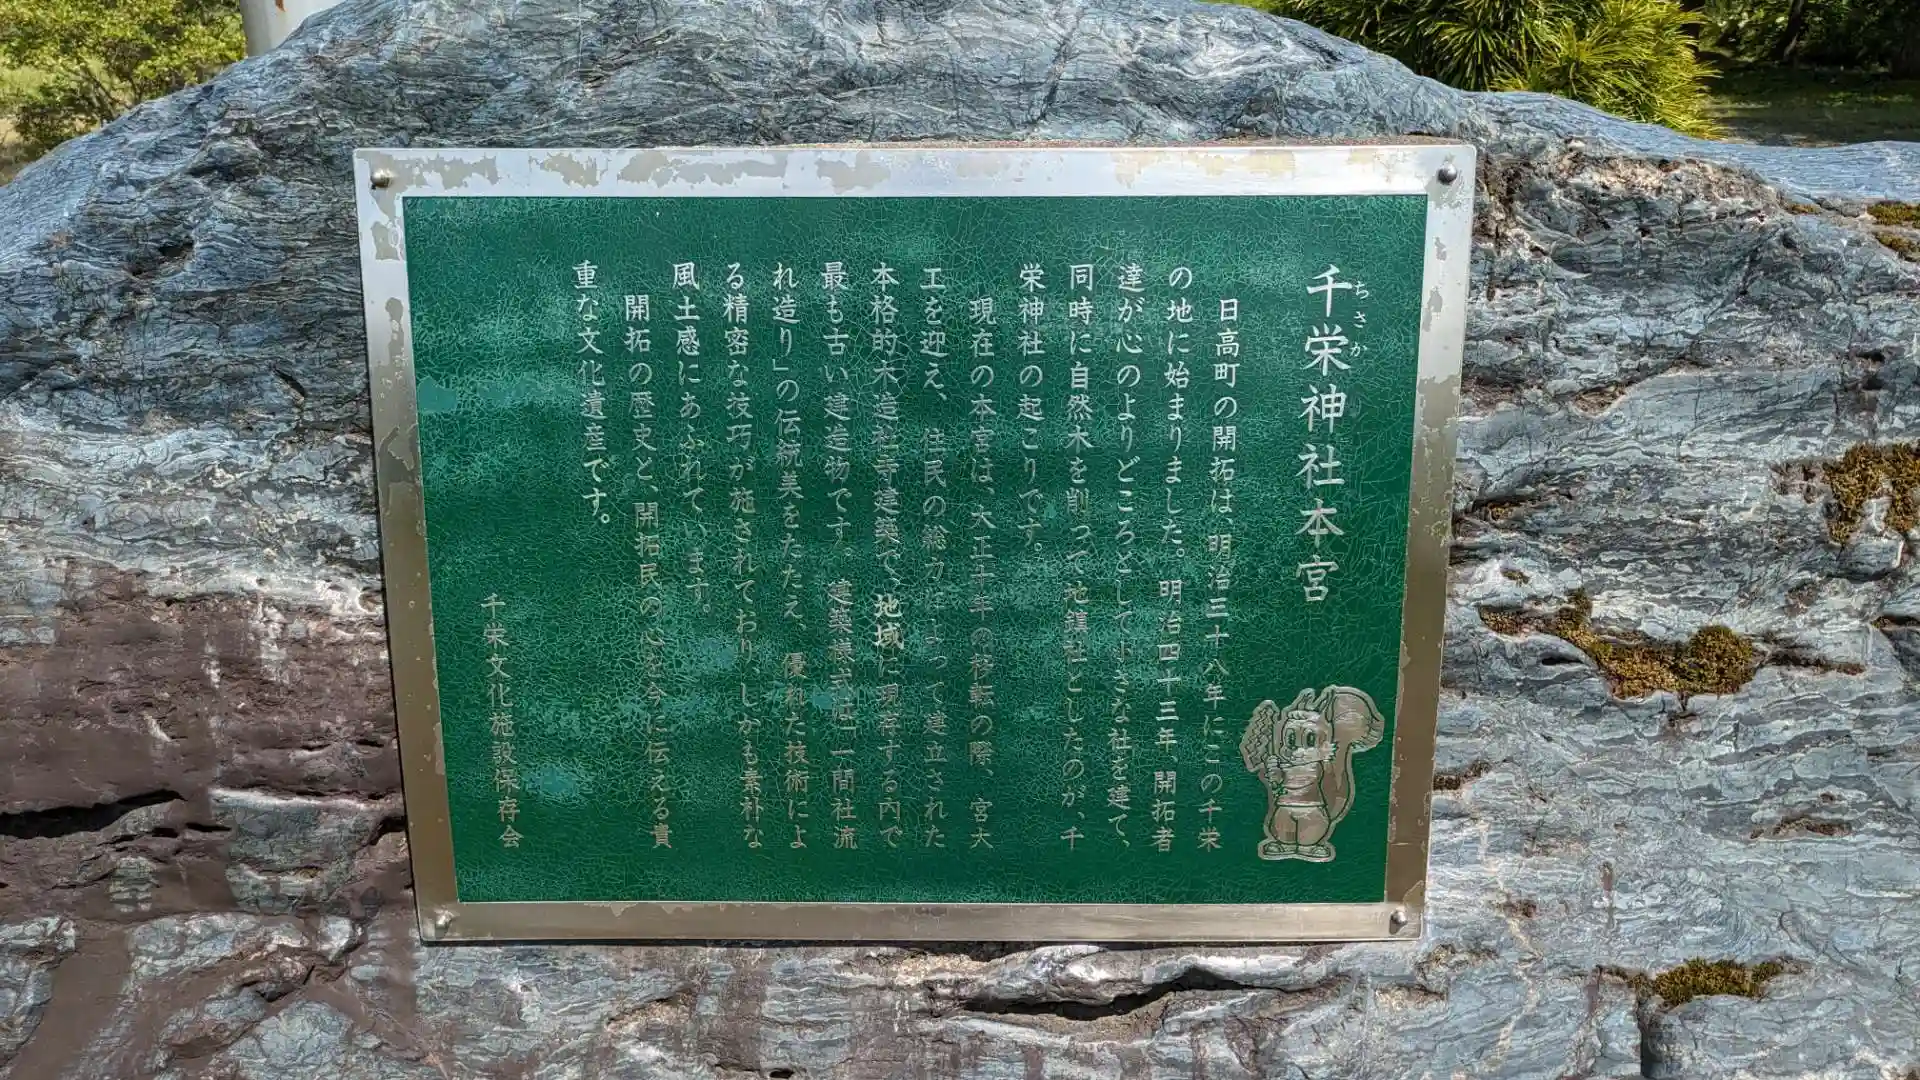 千栄神社本宮
ちさか
日高町の開拓は、明治三十八年にこの千栄
の地に始まりました。明治四十三年、開拓者
達が心のよりどころとして小さな社を建て、
同時に自然木を削って地鎮社としたのが、千
栄神社の起こりです。
現在の本宮は、大正十年の移転の際、宮大
工を迎え、住民の総力によって建立された
本格的木造社寺建築で、地域に現存する内で
最も古い建造物です。建築様式は「一間社流
れ造り」の伝統美をたたえ、優れた技術によ
る精密な技巧が施されており、しかも素朴な
風土感にあふれています。
開拓の歴史と、開拓民の心を今に伝える貴
重な文化遺産です。
千栄文化施設保存会